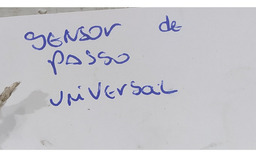 SENSOR de
PASSO
UNIVERSAL